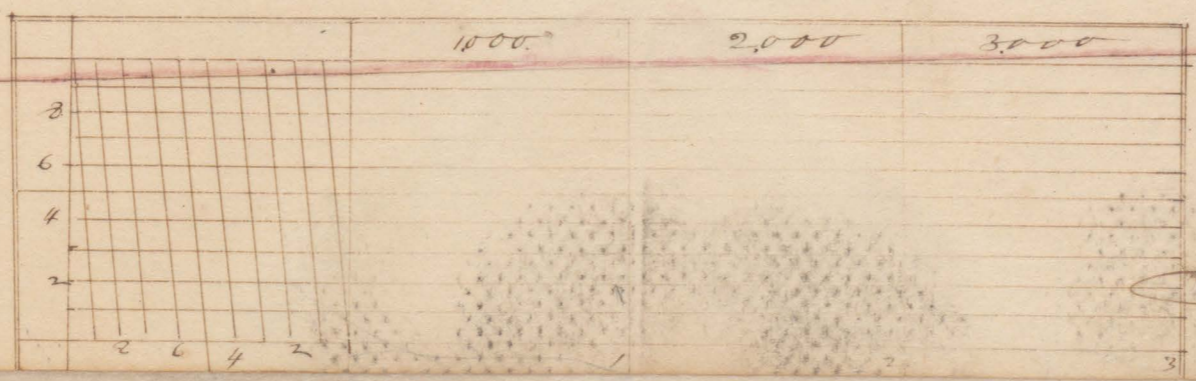 1000 2000 3000
8
6
4
2
2 6 4 2 1 2 3